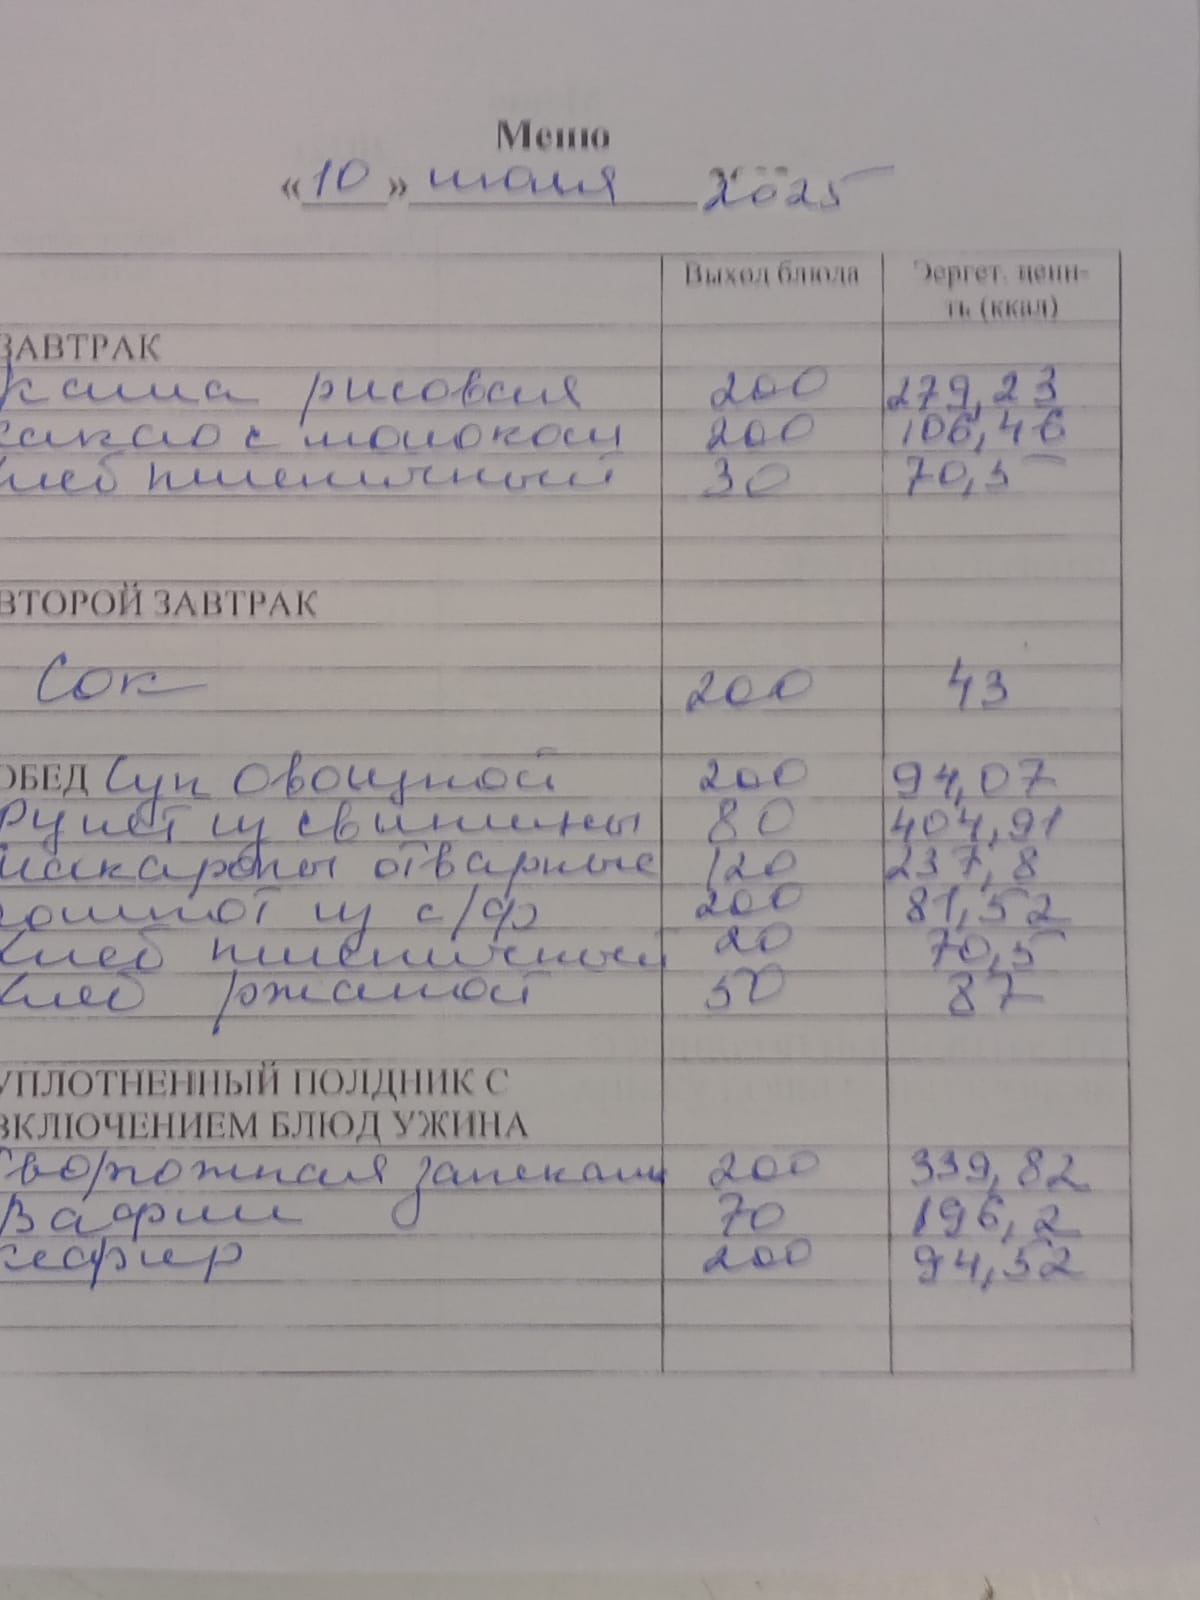 Меню
«10» июля 2025
Выход блюда Эергет. ценн-
ть (ккал)
ЗАВТРАК
Каша рисовая 200 279,23
какао с молоком 200 106,46
хлеб пшеничный 30 70,5
ВТОРОЙ ЗАВТРАК
Сок 200 43
ОБЕД Суп овощной 200 94,07
Рулет из свинины 80 404,91
макароны отварные 120 237,8
компот из с/ф 200 81,52
хлеб пшеничный 20 70,5
хлеб ржаной 50 87
УПЛОТНЕННЫЙ ПОЛДНИК С
ВКЛЮЧЕНИЕМ БЛЮД УЖИНА
Творожная запекан 200 339,82
Вафли 70 196,2
кефир 200 94,52